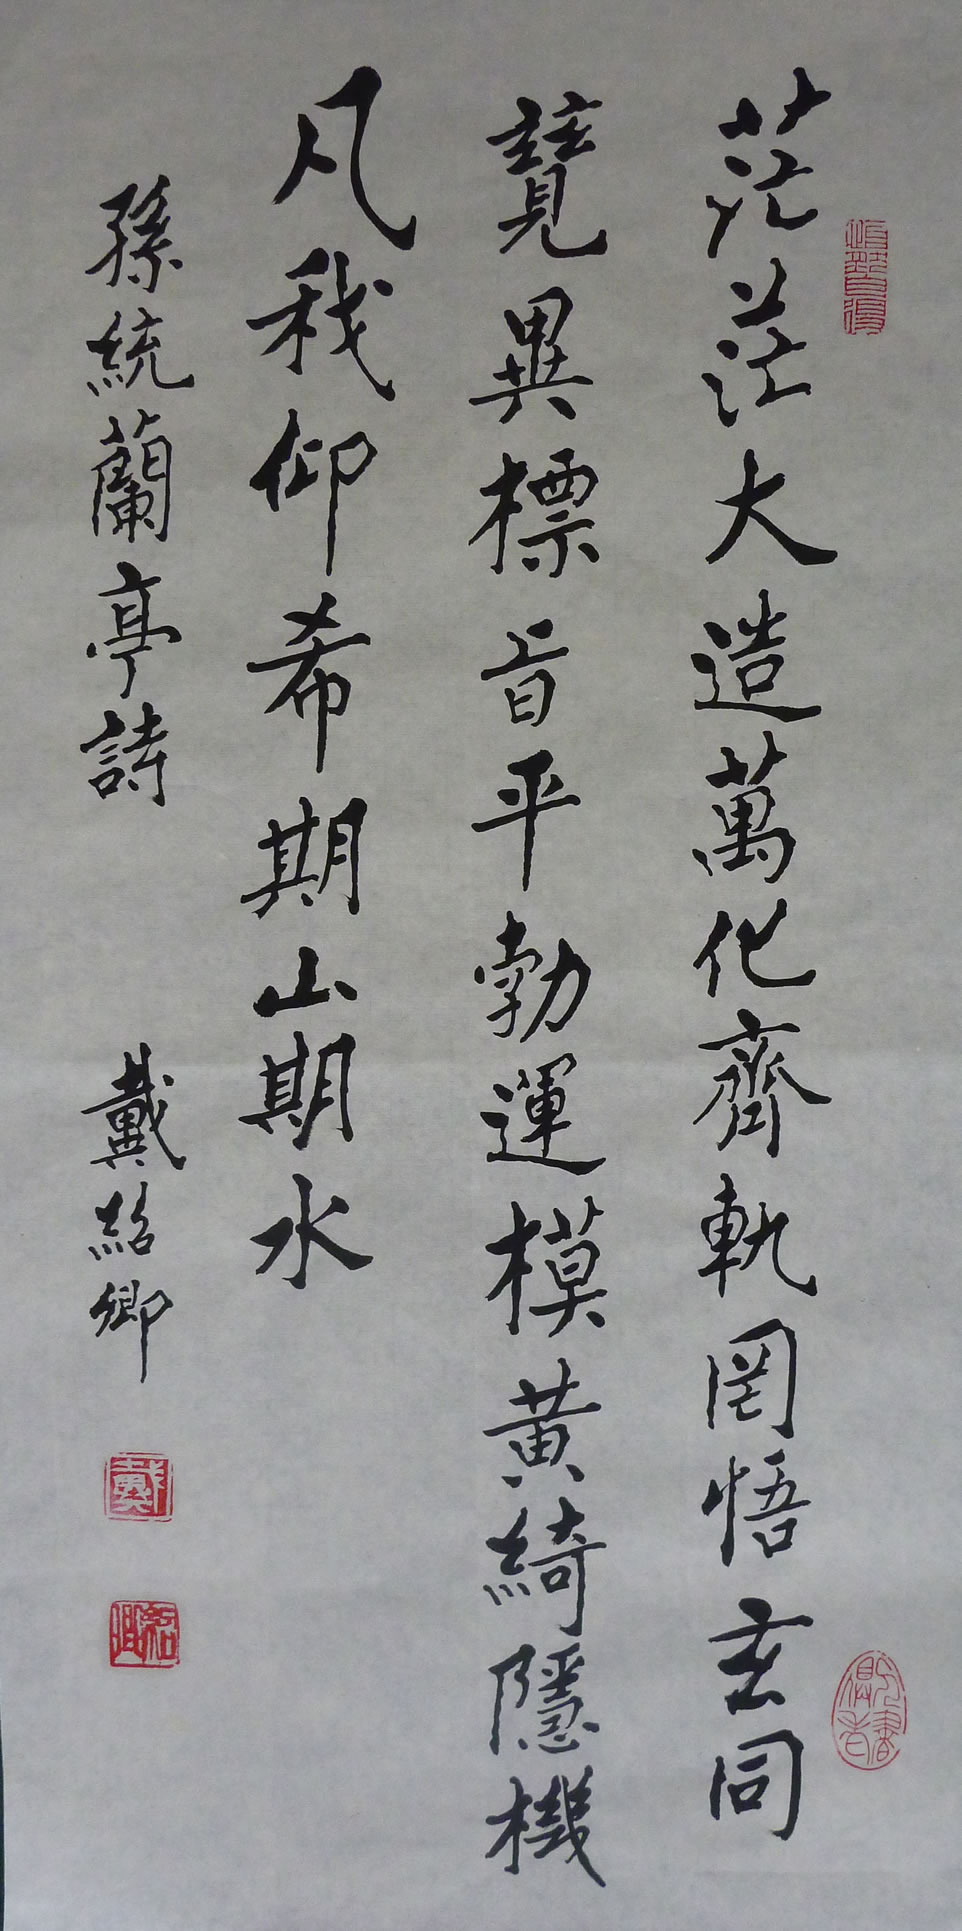 茫茫大造萬化齊軌罔悟玄同
競異標旨平勃運模黃綺隱機
凡我仰希期山期水
孫統蘭亭詩 戴紹卿
戴
紹卿